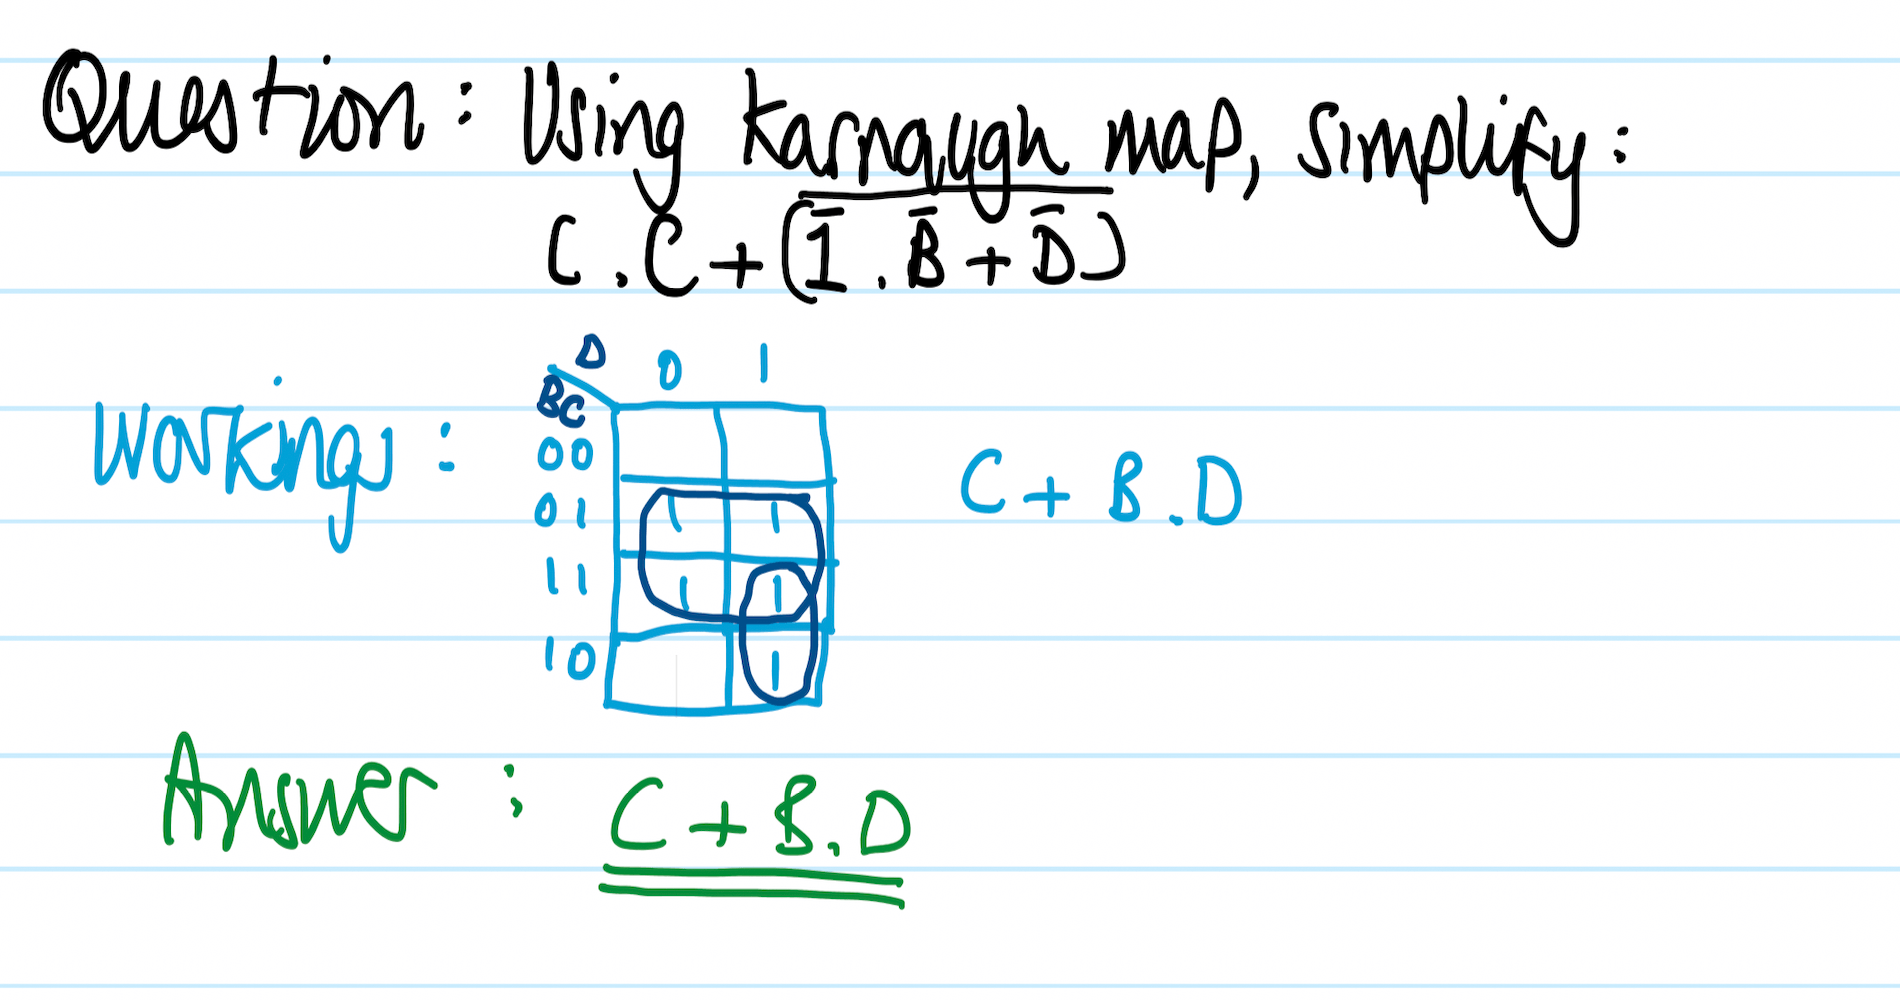 Question : Using Karnaugh map, simplify :
C . C + \overline{(\bar{1} . \bar{B} + \bar{D})}
Workings :
D 0 1
BC
00
01 1 1
11 1 1
10 1
C + B . D
Answer : C + B . D